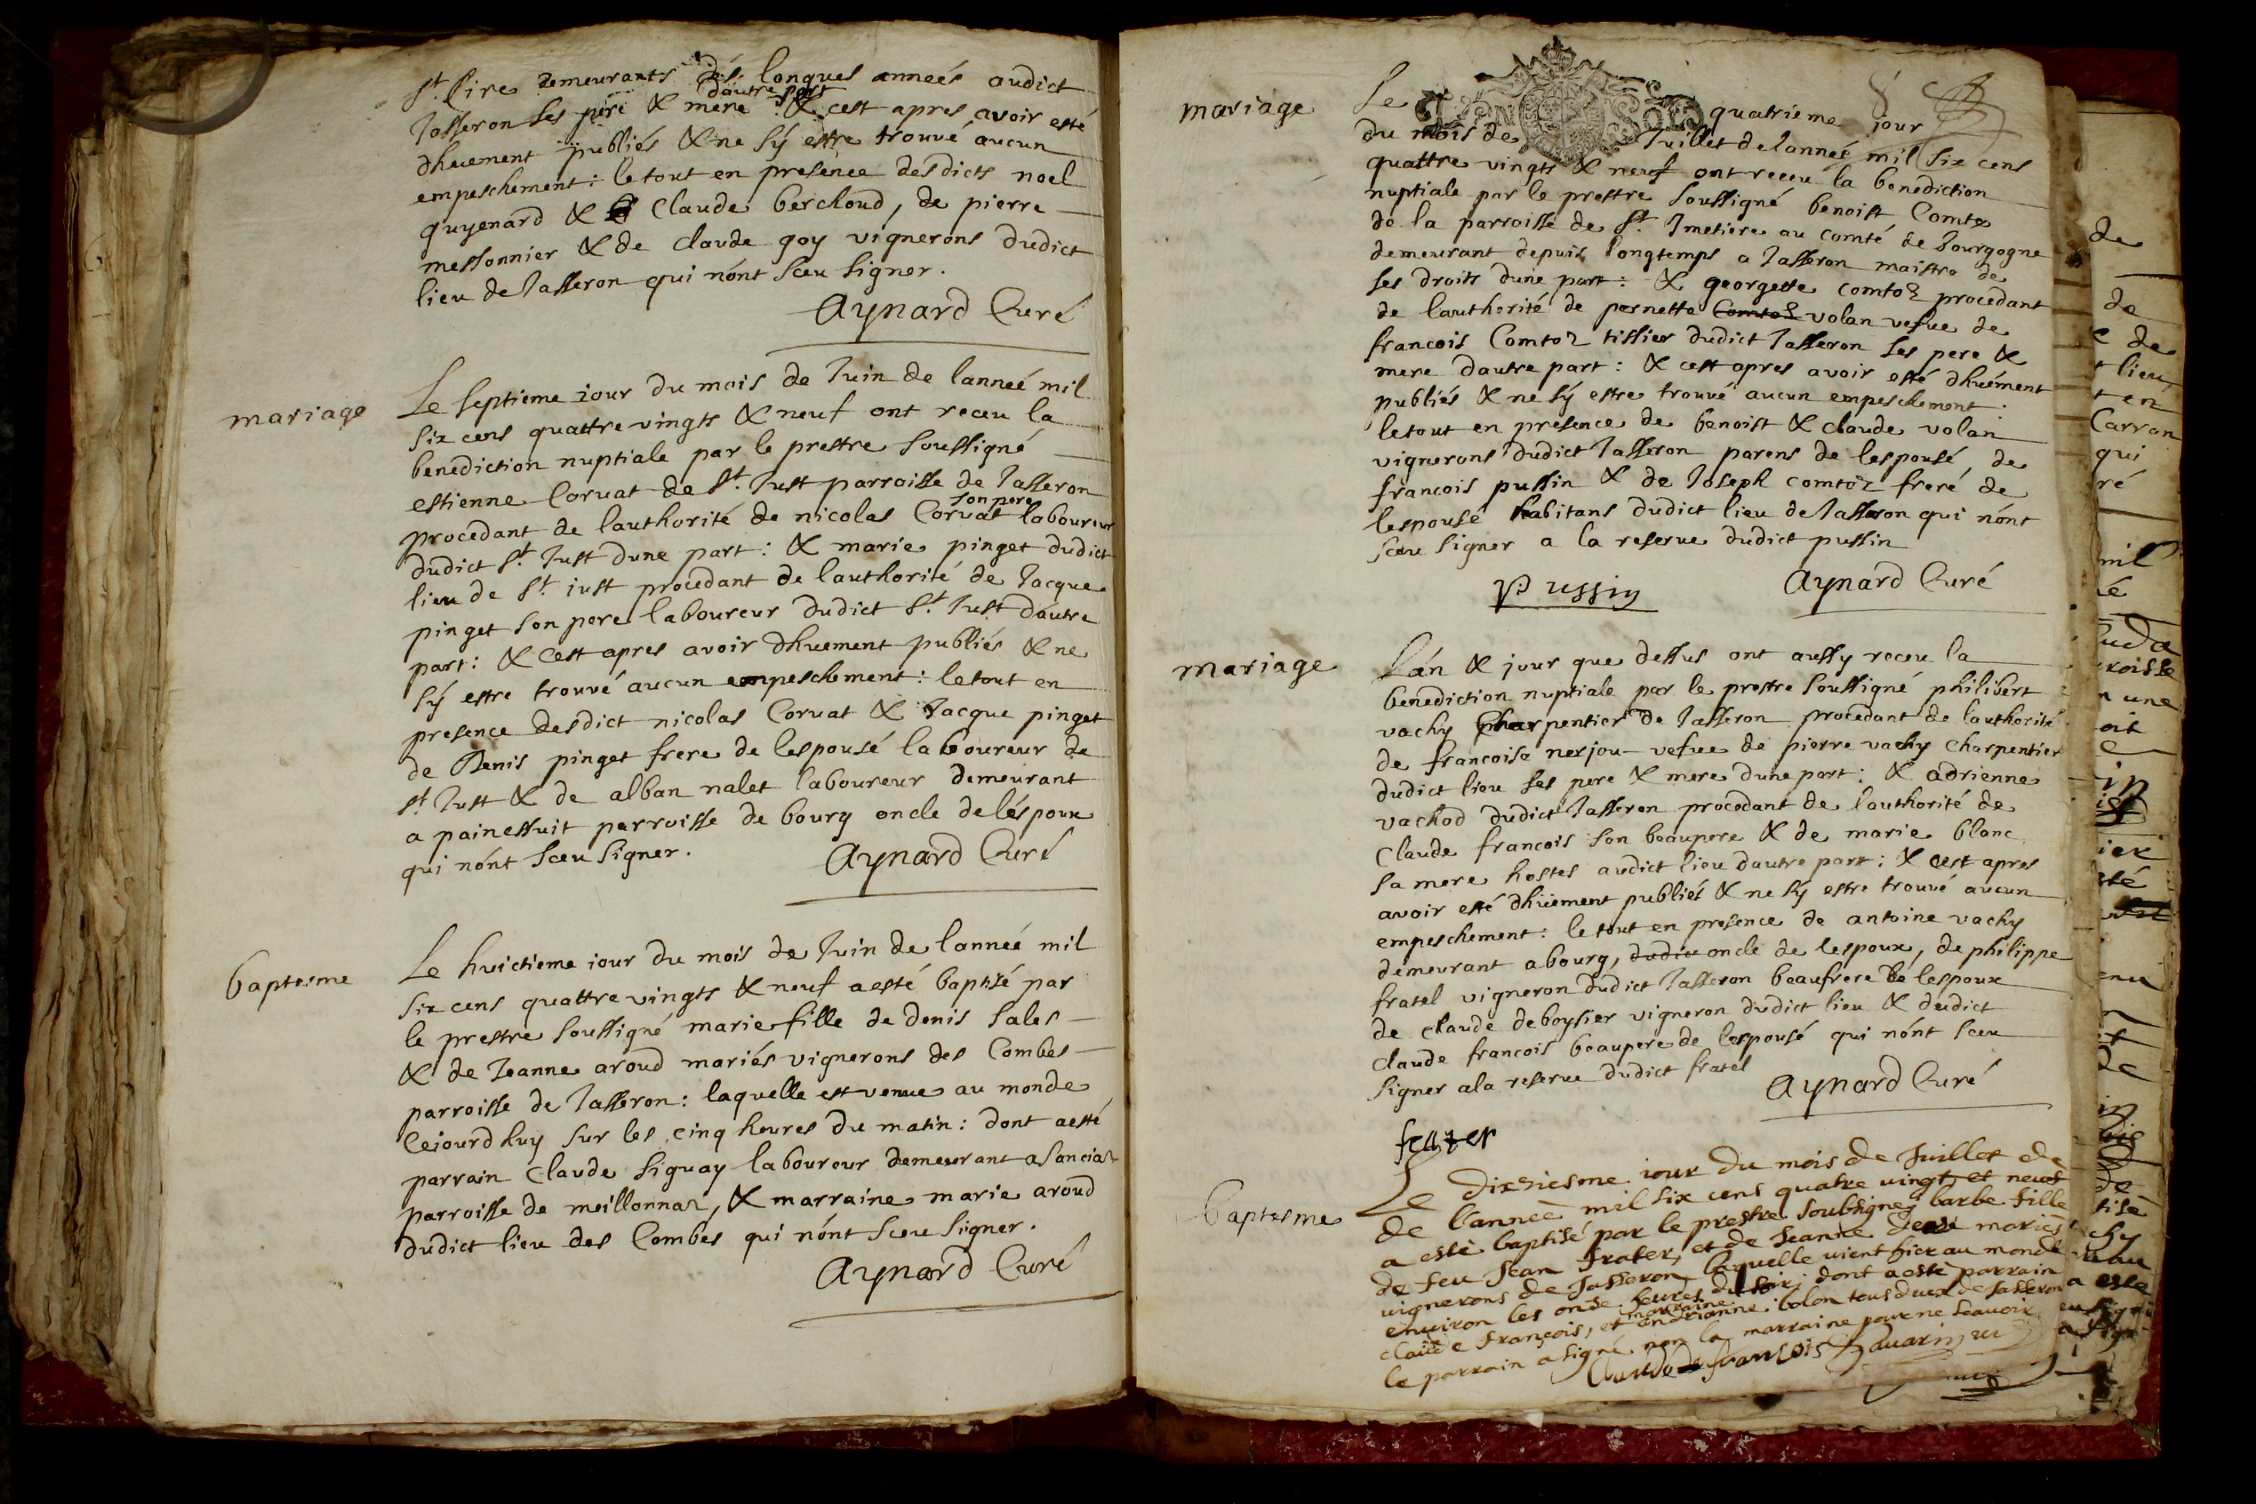 St. Cire demeurants dés longues anneés audict
Jasseron ses pere & mere dautre part & cest apres avoir esté
dhuement publiés & ne sÿ estre trouvé aucun
empeschement: le tout en presence desdicts noel
guyenard & Claude berchoud, de pierre
messonnier & de claude goy vignerons dudict
lieu de Jasseron qui nónt sceu signer.
Aynard Curé
mariage
Le septieme iour du mois de Juin de lanneé mil
six cens quattre vingts & neuf ont receu la
benediction nuptiale par le prestre soussigné
estienne Corvat de St. Just parroisse de Jasseron
procedant de lauthorité de nicolas Corvat son pere laboureur
dudict St. Just dune part: & marie pinget dudict
lieu de St. iust procedant de lauthorité de Jacque
pinget son pere laboureur dudict St. Just dautre
part: & cest apres avoir dhuement publiés & ne
sÿ estre trouvé aucun empeschement: le tout en
presence desdict nicolas Corvat & Jacque pinget
de Denis pinget frere de lespousé laboureur de
St. Just & de alban nalet laboureur demeurant
a painessuit parroisse de bourg oncle de léspoux
qui nónt sceu signer.
Aynard Curé
baptesme
Le huictieme iour du mois de Juin de lanneé mil
six cens quattre vingts & neuf a esté baptisé par
le prestre soussigné marie fille de denis sales
& de Jeanne aroud mariés vignerons des Combes
parroisse de Jasseron: laquelle est venue au monde
Cejourdhuy sur les cinq heures du matin: dont a esté
parrain Claude siguay laboureur demeurant a sanciat
parroisse de meillonnaz, & marraine marie aroud
dudict lieu des Combes qui nónt sceu signer.
Aynard Curé
mariage
Le quatrieme jour
du mois de Juillet de lanneé mil six cens
quattre vingts & neuf ont receu la benediction
nuptiale par le prestre soussigné benoist Comte
de la parroisse de St. Jmetiere au comté de bourgogne
demeurant depuis longtemps a Jasseron maistre de
ses droits dune part: & georgette comtoz procedant
de lauthorité de pernette Comtoz volan vefue de
francois Comtoz tissier dudict Jasseron ses pere &
mere dautre part: & cest apres avoir esté dhuément
publiés & ne sÿ estre trouvé aucun empeschement:
le tout en presence de benoist & claude volan
vignerons dudict Jasseron parens de lespousé, de
francois pussin & de Joseph comtoz freré de
lespousé habitans dudict lieu de Jasseron qui nónt
sceu signer a la reserue dudict pussin
Pussin Aynard Curé
mariage
Lán & jour que dessus ont aussy receu la
benediction nuptiale par le prestre soussigné philibert
vachy Charpentier de Jasseron procedant de lauthorité
de francoise nerjou vefue de pierre vachy Charpentier
dudict lieu ses pere & mere dune part: & adrienne
vachod dudict Jasseron procedant de lauthorité de
Claude francois son beaupere & de marie blanc
sa mere hostes audict lieu dautre part: & cest apres
avoir esté dhüement publiés & ne sÿ estre trouvé aucun
empeschement: le tout en presence de antoine vachy
demeurant a bourg, dudict oncle de lespoux, de philippe
fratel vigneron dudict Jasseron beaufrere de lespoux
de Claude deboysier vigneron dudict lieu & deudict
Claude francois beaupere de lespousé qui nónt sceu
signer ala reserue dudict fratel
Aynard Curé
baptesme
Le dixiesme iour du mois de Juillet de
de l'anneè mil six cens quatre vingt et neuf
a estè baptisé par le prestre soubsigné barbe fille
de feu Jean frater, et de Jeanne mariés
vignerons de Jasseron, laquelle vient hier au monde
environ les onze heures du soir; dont a esté parrain
Claude françois, et marraine andrianne bolon tous dueux de Jasseron
le parrain a signé non la marraine pour ne scavoir
Claude françois